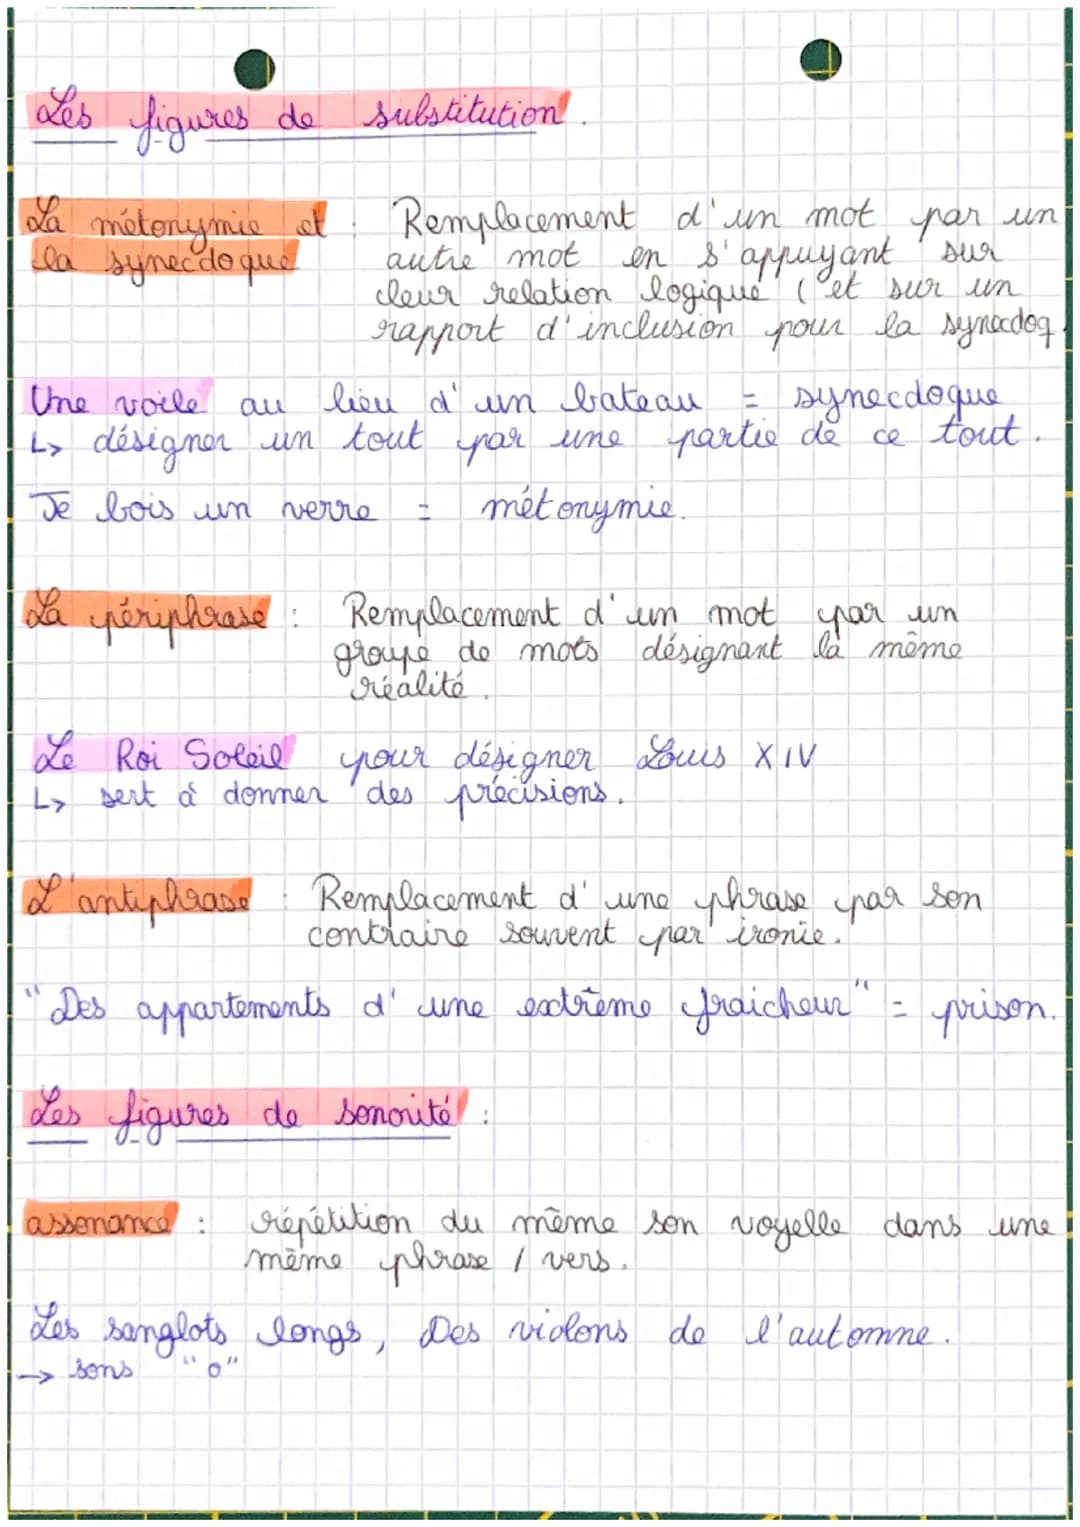 Les figures de substitution.
La métonymie et : Remplacement d'un mot par un
la synecdoque autre mot en s'appuyant sur
leur relation logique (et sur un
rapport d'inclusion pour la synecdoq.
Une voile au lieu d'un bateau = synecdoque
↳ désigner un tout par une partie de ce tout.
Je bois un verre = métonymie.
La périphrase : Remplacement d'un mot par un
groupe de mots désignant la même
réalité.
Le Roi Soleil pour désigner Louis XIV
↳ sert à donner des précisions.
L'antiphrase : Remplacement d'une phrase par son
contraire souvent par ironie.
"Des appartements d'une extrême fraicheur" = prison.
Les figures de sonorité :
assonance : répétition du même son voyelle dans une
même phrase / vers.
Les sanglots longs, Des violons de l'automne.
→ sons "o"